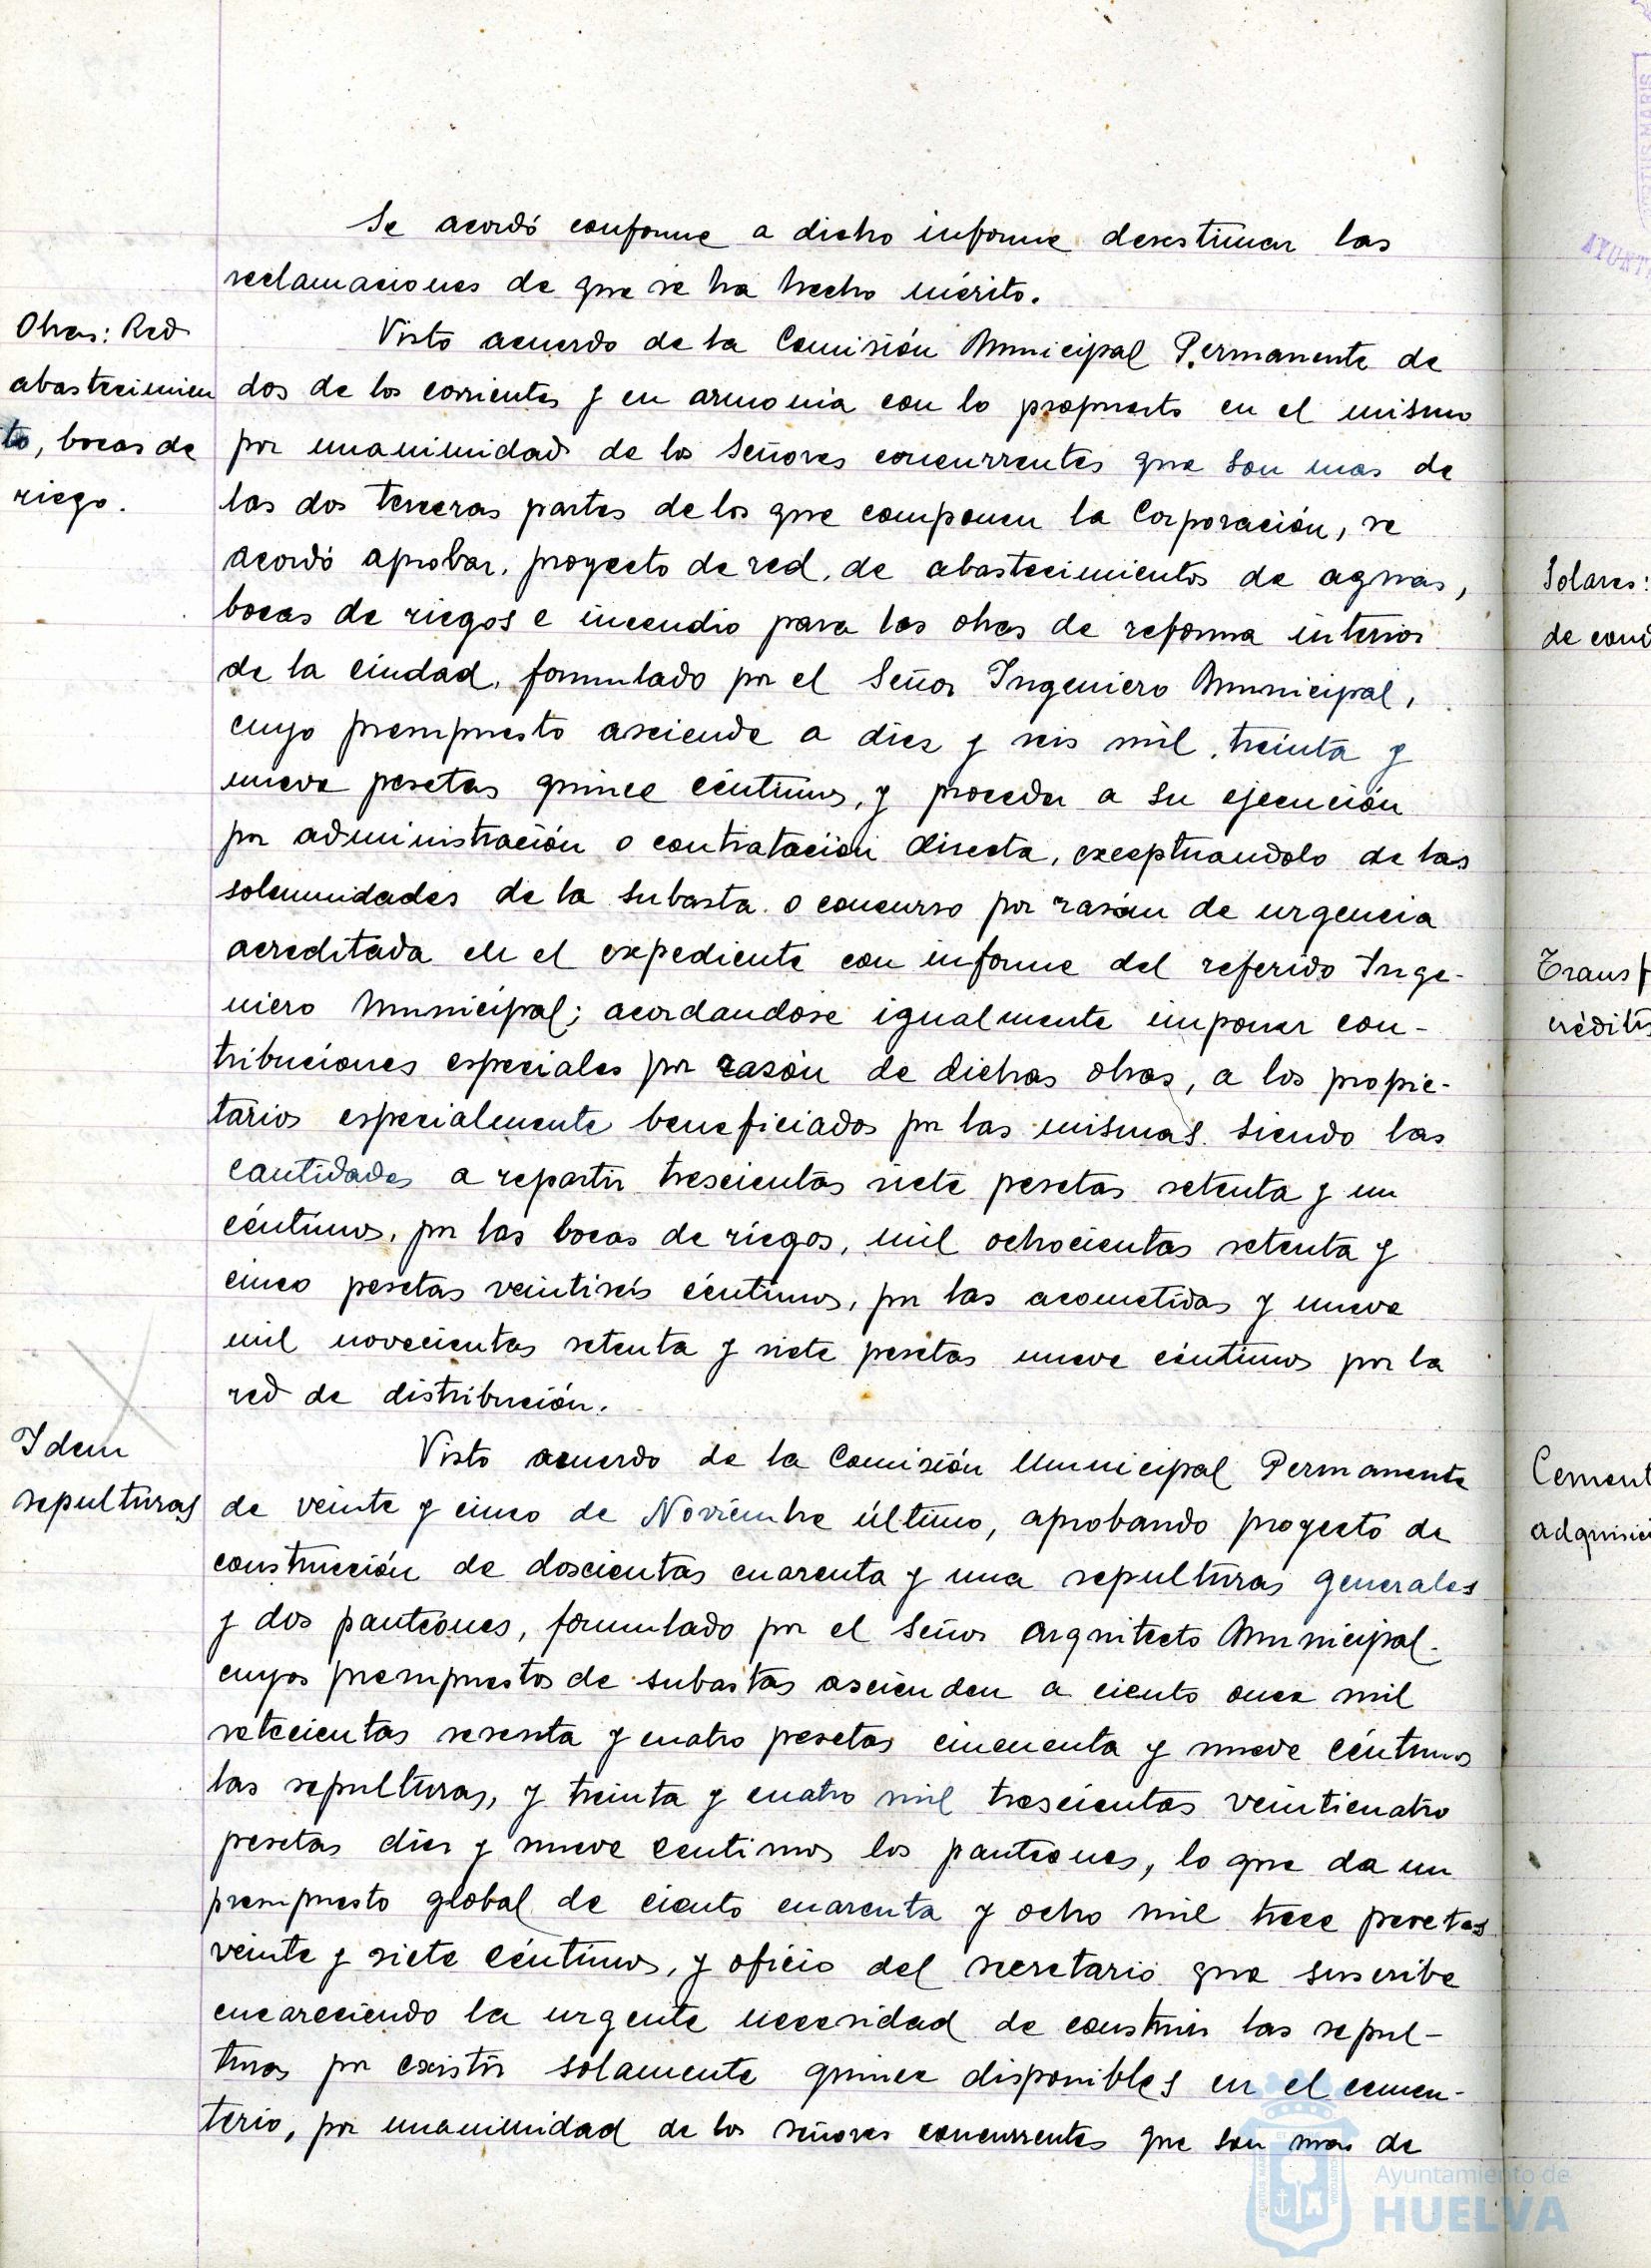 Se acordó conforme a dicho informe desestimar las
reclamaciones de que se ha hecho mérito.
Obras: Red
abastecimien
to, bocas de
riego.
Visto acuerdo de la Comisión Municipal Permanente de
dos de los corrientes y en armonia con lo propuesto en el mismo
por unanimidad de los Señores concurrentes que son mas de
las dos terceras partes de los que componen la Corporación, se
acordó aprobar, proyecto de red, de abastecimientos de aguas,
bocas de riegos e incendio para las obras de reforma interior
de la ciudad, formulado por el Señor Ingeniero Municipal,
cuyo presupuesto asciende a diez y seis mil, treinta y
nueve pesetas quince céntimos, y proceder a su ejecución
por administración o contratación directa, exceptuandolo de las
solemnidades de la subasta o concurso por razón de urgencia
acreditada en el expediente con informe del referido Inge-
niero Municipal; acordandose igualmente imponer con-
tribuciones especiales por razón de dichas obras, a los propie-
tarios especialmente beneficiados por las mismas siendo las
cantidades a repartir trescientas siete pesetas setenta y un
céntimos, por las bocas de riegos, mil ochocientas setenta y
cinco pesetas veintiseis céntimos, por las acometidas y nueve
mil novecientas setenta y siete pesetas nueve céntimos por la
red de distribución.
Idem
sepulturas
Visto acuerdo de la Comisión Municipal Permanente
de veinte y cinco de Noviembre último, aprobando proyecto de
construcción de doscientas cuarenta y una sepulturas generales
y dos panteones, formulado por el Señor Arquitecto Municipal
cuyos presupuestos de subastas ascienden a ciento once mil
setecientas sesenta y cuatro pesetas cincuenta y nueve céntimos
las sepulturas, y treinta y cuatro mil trescientas veinticuatro
pesetas diez y nueve centimos los panteones, lo que da un
presupuesto global de ciento cuarenta y ocho mil trece pesetas
veinte y siete céntimos, y oficio del secretario que suscribe
encareciendo la urgente necesidad de construir las sepul-
turas por existir solamente quince disponibles en el cemen-
terio, por unanimidad de los señores concurrentes que son mas de
Solares:
de
Transf
crédito
Cement
adquisici
AYUNT
Ayuntamiento de
HUELVA